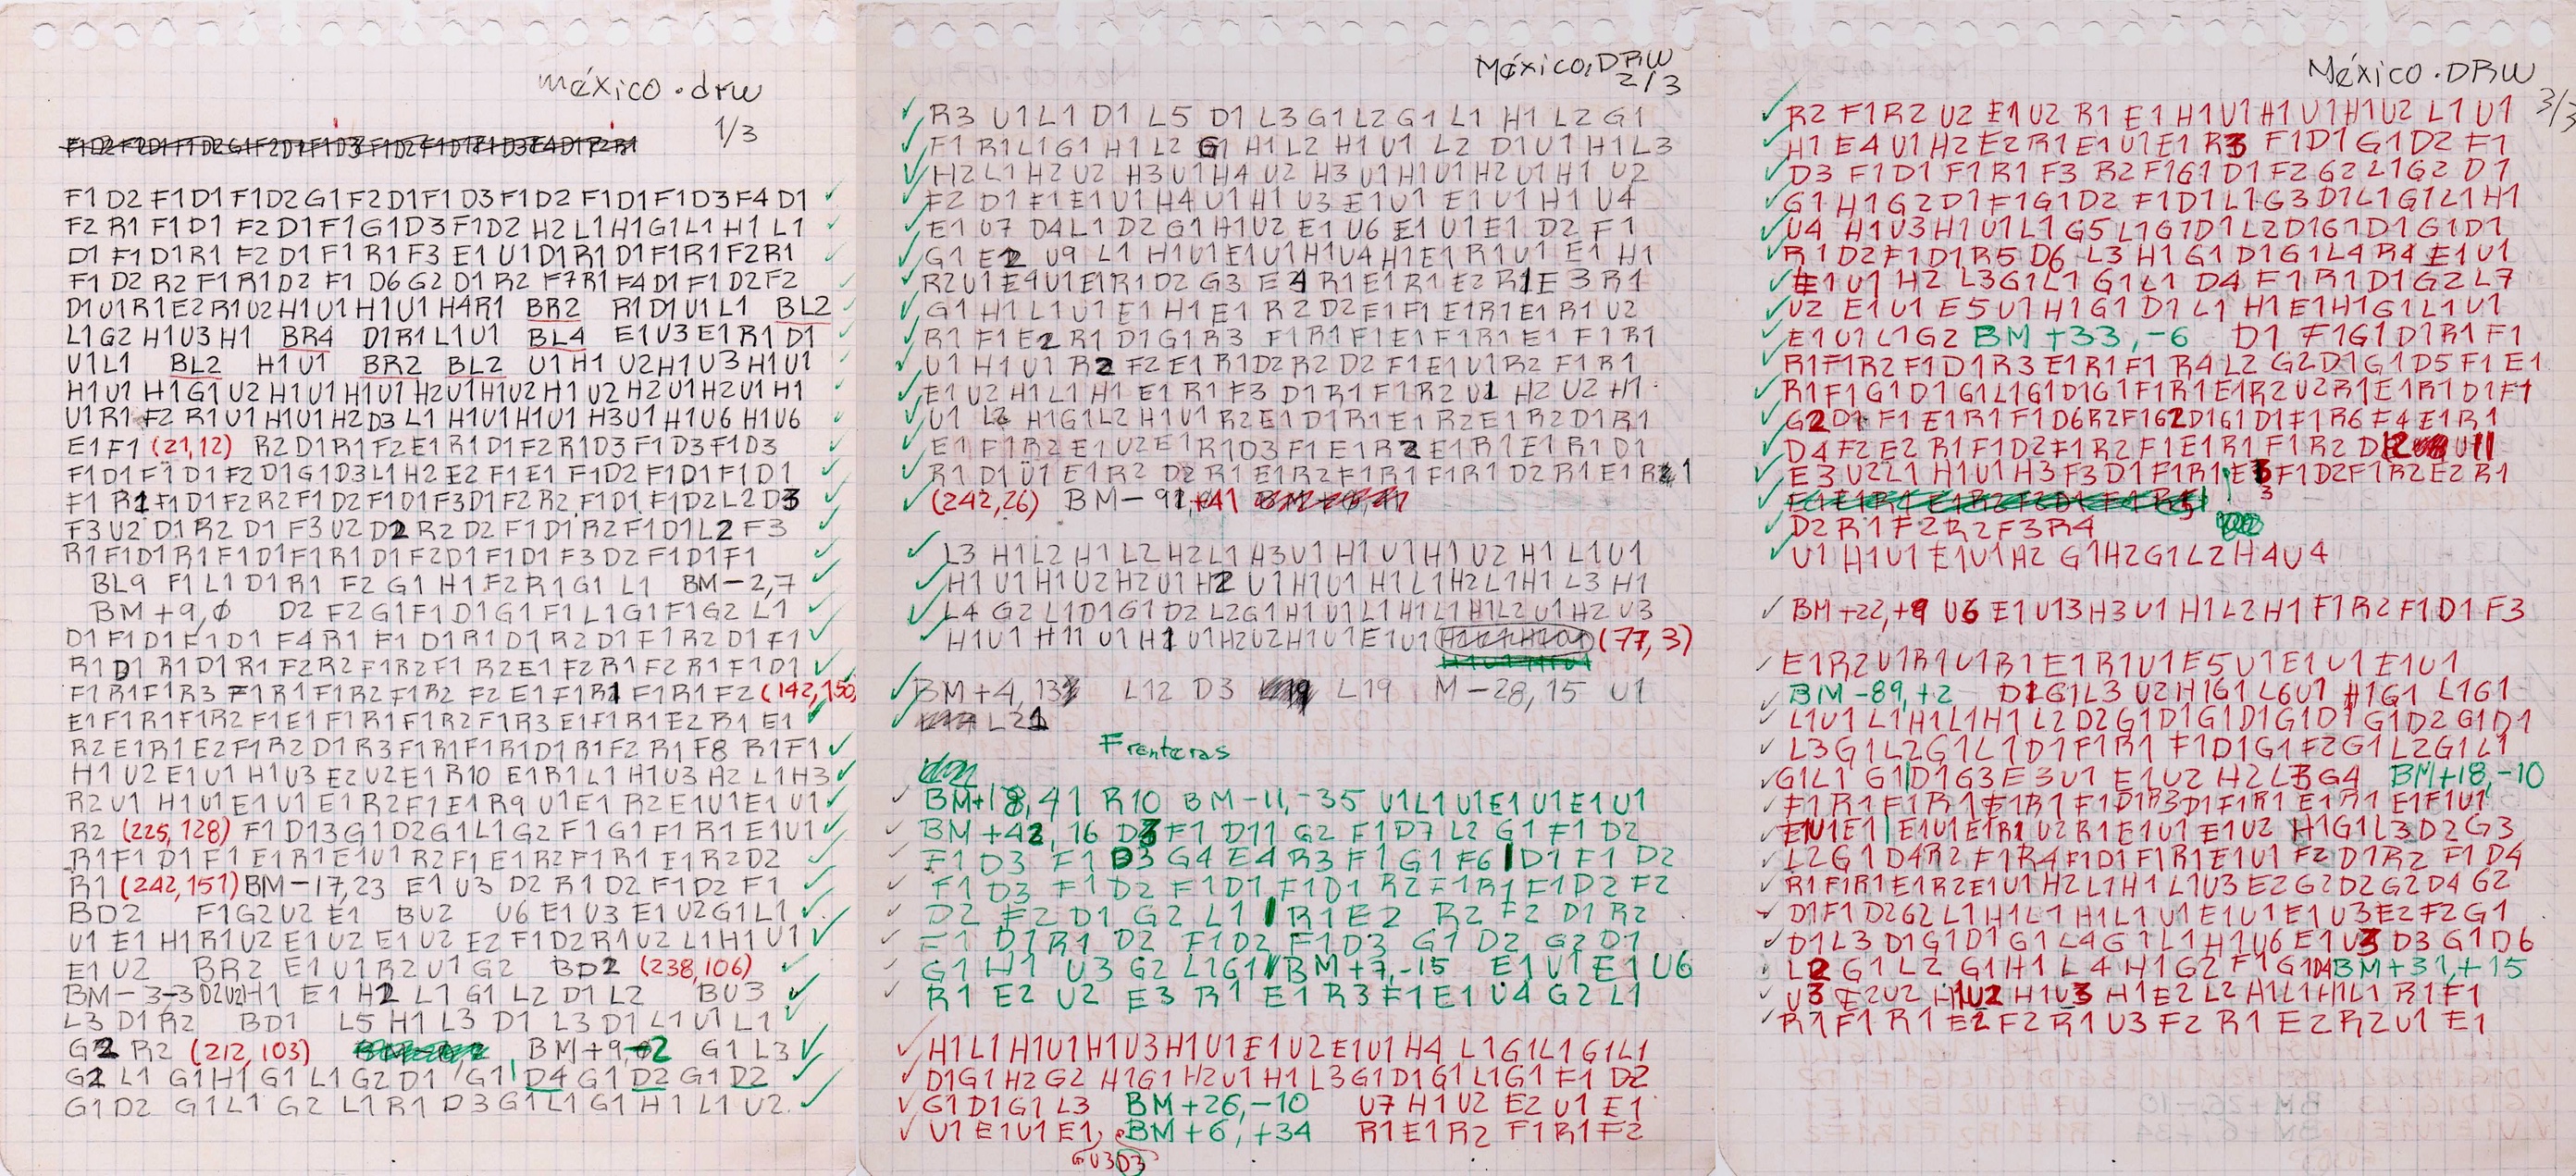 méxico.drw
1/3
F1 D2 F1 D1 F1 D2 G1 F2 D1 F1 D3 F1 D2 F1 D1 F1 D3 F4 D1
F2 R1 F1 D1 F2 D1 F1 G1 D3 F1 D2 H2 L1 H1 G1 L1 H1 L1
D1 F1 D1 R1 F2 D1 F1 R1 F3 E1 U1 D1 R1 D1 F1 R1 F2 R1
F1 D2 R2 F1 R1 D2 F1 D6 G2 D1 R2 F7 R1 F4 D1 F1 D2 F2
D1 U1 R1 E2 R1 U2 H1 U1 H1 U1 H4 R1 BR2 R1 D1 U1 L1 BL2
L1 G2 H1 U3 H1 BR4 D1 R1 L1 U1 BL4 E1 U3 E1 R1 D1
U1 L1 BL2 H1 U1 BR2 BL2 U1 H1 U2 H1 U3 H1 U1
H1 U1 H1 G1 U2 H1 U1 H1 U1 H2 U1 H1 U2 H1 U2 H2 U1 H2 U1 H1
U1 R1 F2 R1 U1 H1 U1 H2 D3 L1 H1 U1 H1 U1 H3 U1 H1 U6 H1 U6
E1 F1 (21,12) R2 D1 R1 F2 E1 R1 D1 F2 R1 D3 F1 D3 F1 D3
F1 D1 F1 D1 F2 D1 G1 D3 L1 H2 E2 F1 E1 F1 D2 F1 D1 F1 D1
F1 R1 F1 D1 F2 R2 F1 D2 F1 D1 F3 D1 F2 R2 F1 D1 F1 D2 L2 D3
F3 U2 D1 R2 D1 F3 U2 D2 R2 D2 F1 D1 R2 F1 D1 L2 F3
R1 F1 D1 R1 F1 D1 F1 R1 D1 F2 D1 F1 D1 F3 D2 F1 D1 F1
BL9 F1 L1 D1 R1 F2 G1 H1 F2 R1 G1 L1 BM-2,7
BM+9,0 D2 F2 G1 F1 D1 G1 F1 L1 G1 F1 G2 L1
D1 F1 D1 E1 D1 F4 R1 F1 D1 R1 D1 R2 D1 F1 R2 D1 F1
R1 D1 R1 D1 R1 F2 R2 F1 R2 F1 R2 E1 F2 R1 F2 R1 F1 D1
F1 R1 F1 R3 F1 R1 F1 R2 F1 R2 F2 E1 F1 R1 F1 R1 F2 (142,150)
E1 F1 R1 F1 R2 F1 E1 F1 R1 F1 R2 F1 R3 E1 F1 R1 E2 R1 E1
R2 E1 R1 E2 F1 R2 D1 R3 F1 R1 F1 R1 D1 R1 F2 R1 F8 R1 F1
H1 U2 E1 U1 H1 U3 E2 U2 E1 R10 E1 R1 L1 H1 U3 H2 L1 H3
R2 U1 H1 U1 E1 U1 E1 R2 F1 E1 R9 U1 E1 R2 E1 U1 E1 U1
R2 (225,128) F1 D13 G1 D2 G1 L1 G2 F1 G1 F1 R1 E1 U1
R1 F1 D1 F1 E1 R1 E1 U1 R2 F1 E1 R2 F1 R1 E1 R2 D2
R1 (242,151) BM-17,23 E1 U3 D2 R1 D2 F1 D2 F1
BD2 F1 G2 U2 E1 BU2 U6 E1 U3 E1 U2 G1 L1
U1 E1 H1 R1 U2 E1 U2 E1 U2 E2 F1 D2 R1 U2 L1 H1 U1
E1 U2 BR2 E1 U1 R2 U1 G2 BD2 (238,106)
BM-3-3 D2 U2 H1 E1 H2 L1 G1 L2 D1 L2 BU3
L3 D1 R2 BD1 L5 H1 L3 D1 L3 D1 L1 U1 L1
G2 R2 (212,103) BM+9,+2 G1 L3
G2 L1 G1 H1 G1 L1 G2 D1 G1 D4 G1 D2 G1 D2
G1 D2 G1 L1 G2 L1 R1 D3 G1 L1 G1 H1 L1 U2
México.DRW
2/3
R3 U1 L1 D1 L5 D1 L3 G1 L2 G1 L1 H1 L2 G1
F1 R1 L1 G1 H1 L2 G1 H1 L2 H1 U1 L2 D1 U1 H1 L3
H2 L1 H2 U2 H3 U1 H4 U2 H3 U1 H1 U1 H2 U1 H1 U2
F2 D1 E1 E1 U1 H4 U1 H1 U3 E1 U1 E1 U1 H1 U4
E1 U7 D4 L1 D2 G1 H1 U2 E1 U6 E1 U1 E1 D2 F1
G1 E2 U9 L1 H1 U1 E1 U1 H1 U4 H1 E1 R1 U1 E1 H1
R2 U1 E4 U1 E1 R1 D2 G3 E4 R1 E1 R1 E2 R1 E3 R1
G1 H1 L1 U1 E1 H1 E1 R2 D2 E1 F1 E1 R1 E1 R1 U2
R1 F1 E2 R1 D1 G1 R3 F1 R1 F1 E1 F1 R1 E1 F1 R1
U1 H1 U1 R2 F2 E1 R1 D2 R2 D2 F1 E1 U1 R2 F1 R1
E1 U2 H1 L1 H1 E1 R1 F3 D1 R1 F1 R2 U1 H2 U2 H1
U1 L2 H1 G1 L2 H1 U1 R2 E1 D1 R1 E1 R2 E1 R2 D1 R1
E1 F1 R2 E1 U2 E1 R1 D3 F1 E1 R2 E1 R1 E1 R1 D1
R1 D1 U1 E1 R2 D2 R1 E1 R2 F1 R1 F1 R1 D2 R1 E1 R1
(242,26) BM-91,+41
L3 H1 L2 H1 L2 H2 L1 H3 U1 H1 U1 H1 U2 H1 L1 U1
H1 U1 H1 U2 H2 U1 H2 U1 H1 U1 H1 L1 H2 L1 H1 L3 H1
L4 G2 L1 D1 G1 D2 L2 G1 H1 U1 L1 H1 L1 H1 L2 U1 H2 U3
H1 U1 H11 U1 H1 U1 H2 U2 H1 U1 E1 U1 (77,3)
BM+4,13 L12 D3 L19 M-28,15 U1
L21
Fronteras
BM+18,41 R10 BM-11,-35 U1 L1 U1 E1 U1 E1 U1
BM+42,16 D3 F1 D11 G2 F1 D7 L2 G1 F1 D2
F1 D3 F1 D3 G4 E4 R3 F1 G1 F6 D1 F1 D2
F1 D3 F1 D2 F1 D1 F1 D1 R2 F1 R1 F1 D2 F2
D2 E2 D1 G2 L1 R1 E2 R2 F2 D1 R2
F1 D1 R1 D2 F1 D2 F1 D3 G1 D2 G2 D1
G1 H1 U3 G2 L1 G1 BM+7,-15 E1 U1 E1 U6
R1 E2 U2 E3 R1 E1 R3 F1 E1 U4 G2 L1
H1 L1 H1 U1 H1 U3 H1 U1 E1 U2 E1 U1 H4 L1 G1 L1 G1 L1
D1 G1 H2 G2 H1 G1 H2 U1 H1 L3 G1 D1 G1 L1 G1 F1 D2
G1 D1 G1 L3 BM+26,-10 U7 H1 U2 E2 U1 E1
U1 E1 U1 E1 BM+6,+34 R1 E1 R2 F1 R1 F2
G U3 D3
México.DRW
3/3
R2 F1 R2 U2 E1 U2 R1 E1 H1 U1 H1 U1 H1 U2 L1 U1
H1 E4 U1 H2 E2 R1 E1 U1 E1 R3 F1 D1 G1 D2 F1
D3 F1 D1 F1 R1 F3 R2 F1 G1 D1 F2 G2 L1 G2 D1
G1 H1 G2 D1 F1 G1 D2 F1 D1 L1 G3 D1 L1 G1 L1 H1
U4 H1 U3 H1 U1 L1 G5 L1 G1 D1 L2 D1 G1 D1 G1 D1
R1 D2 F1 D1 R5 D6 L3 H1 G1 D1 G1 L4 R4 E1 U1
E1 U1 H2 L3 G1 L1 G1 L1 D4 F1 R1 D1 G2 L7
U2 E1 U1 E5 U1 H1 G1 D1 L1 H1 E1 H1 G1 L1 U1
E1 U1 L1 G2 BM+33,-6 D1 F1 G1 D1 R1 F1
R1 F1 R2 F1 D1 R3 E1 R1 F1 R4 L2 G2 D1 G1 D5 F1 E1
R1 F1 G1 D1 G1 L1 G1 D1 G1 F1 R1 E1 R2 U2 R1 E1 R1 D1 F1
G2 D1 F1 E1 R1 F1 D6 R2 F1 G2 D1 G1 D1 F1 R6 F4 E1 R1
D4 F2 E2 R1 F1 D2 F1 R2 F1 E1 R1 F1 R2 D12 U11
E3 U2 L1 H1 U1 H3 F3 D1 F1 R1 E3 F1 D2 F1 R2 E2 R1
D2 R1 F2 R2 F3 R4
U1 H1 U1 E1 U1 H2 G1 H2 G1 L2 H4 U4
BM+22,+9 U6 E1 U13 H3 U1 H1 L2 H1 F1 R2 F1 D1 F3
E1 R2 U1 R1 U1 R1 E1 R1 U1 E5 U1 E1 U1 E1 U1
BM-89,+2 D1 G1 L3 U2 H1 G1 L6 U1 H1 G1 L1 G1
L1 U1 L1 H1 L1 H1 L2 D2 G1 D1 G1 D1 G1 D1 G1 D2 G1 D1
L3 G1 L2 G1 L1 D1 F1 R1 F1 D1 G1 F2 G1 L2 G1 L1
G1 L1 G1 D1 G3 E3 U1 E1 U2 H2 L3 G4 BM+18,-10
F1 R1 F1 R1 F1 R1 F1 D1 R3 D1 F1 R1 E1 R1 E1 F1 U1
E1 U1 E1 E1 U1 E1 R1 U2 R1 E1 U1 E1 U2 H1 G1 L3 D2 G3
L2 G1 D4 R2 F1 R4 F1 D1 F1 R1 E1 U1 F2 D1 R2 F1 D4
R1 F1 R1 E1 R2 E1 U1 H2 L1 H1 L1 U3 E2 G2 D2 G2 D4 G2
D1 F1 D2 G2 L1 H1 L1 H1 L1 U1 E1 U1 E1 U3 E2 F2 G1
D1 L3 D1 G1 D1 G1 L4 G1 L1 H1 U6 E1 U3 D3 G1 D6
L2 G1 L2 G1 H1 L4 H1 G2 F1 G1 D4 BM+31,+15
U3 E2 U2 H1 U2 H1 U3 H1 E2 L2 H1 L1 H1 L1 R1 F1
R1 F1 R1 E2 F2 R1 U3 F2 R1 E2 R2 U1 E1